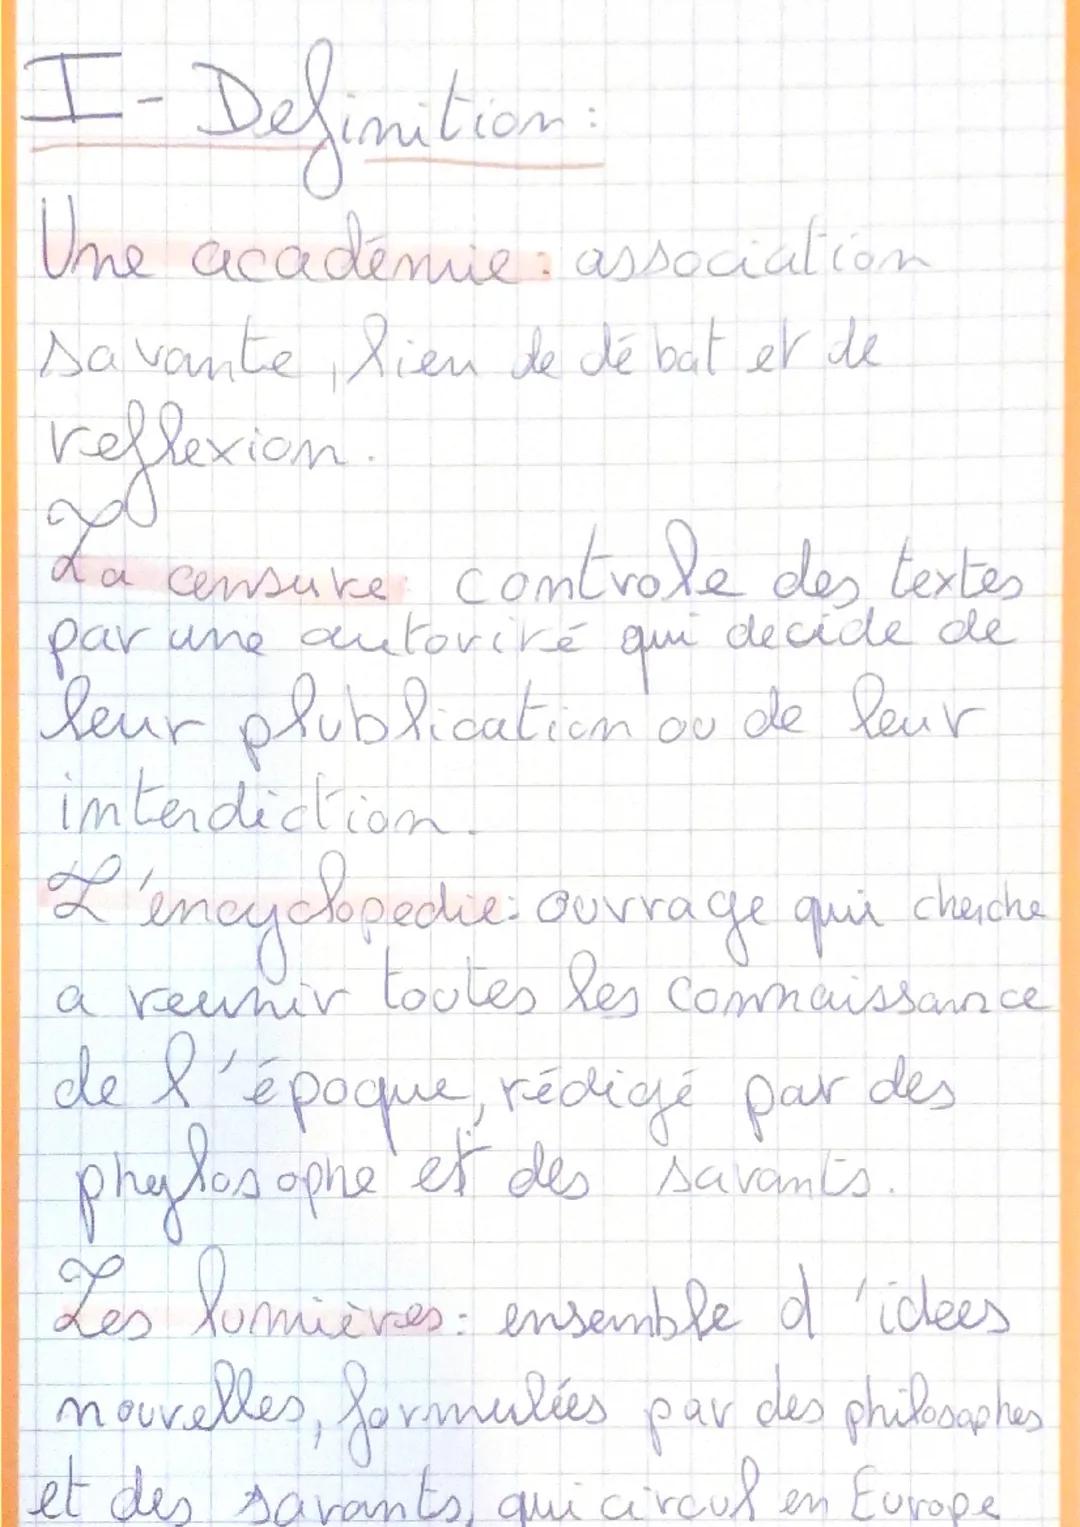 I- Definition:
Une académie: association
savante, lieu de débat et de
reflexion.
La censure: controle des textes
par une autorité qui decide de
leur plublication ou de leur
interdiction.
L'encyclopedie: ouvrage qui cherche
a reunir toutes les connaissance
de l'époque, rédigé par des
phylosophe et des savants.
Les lumières: ensemble d'idees
nouvelles, formulées par des philosophes
et des savants, qui circul en Europe